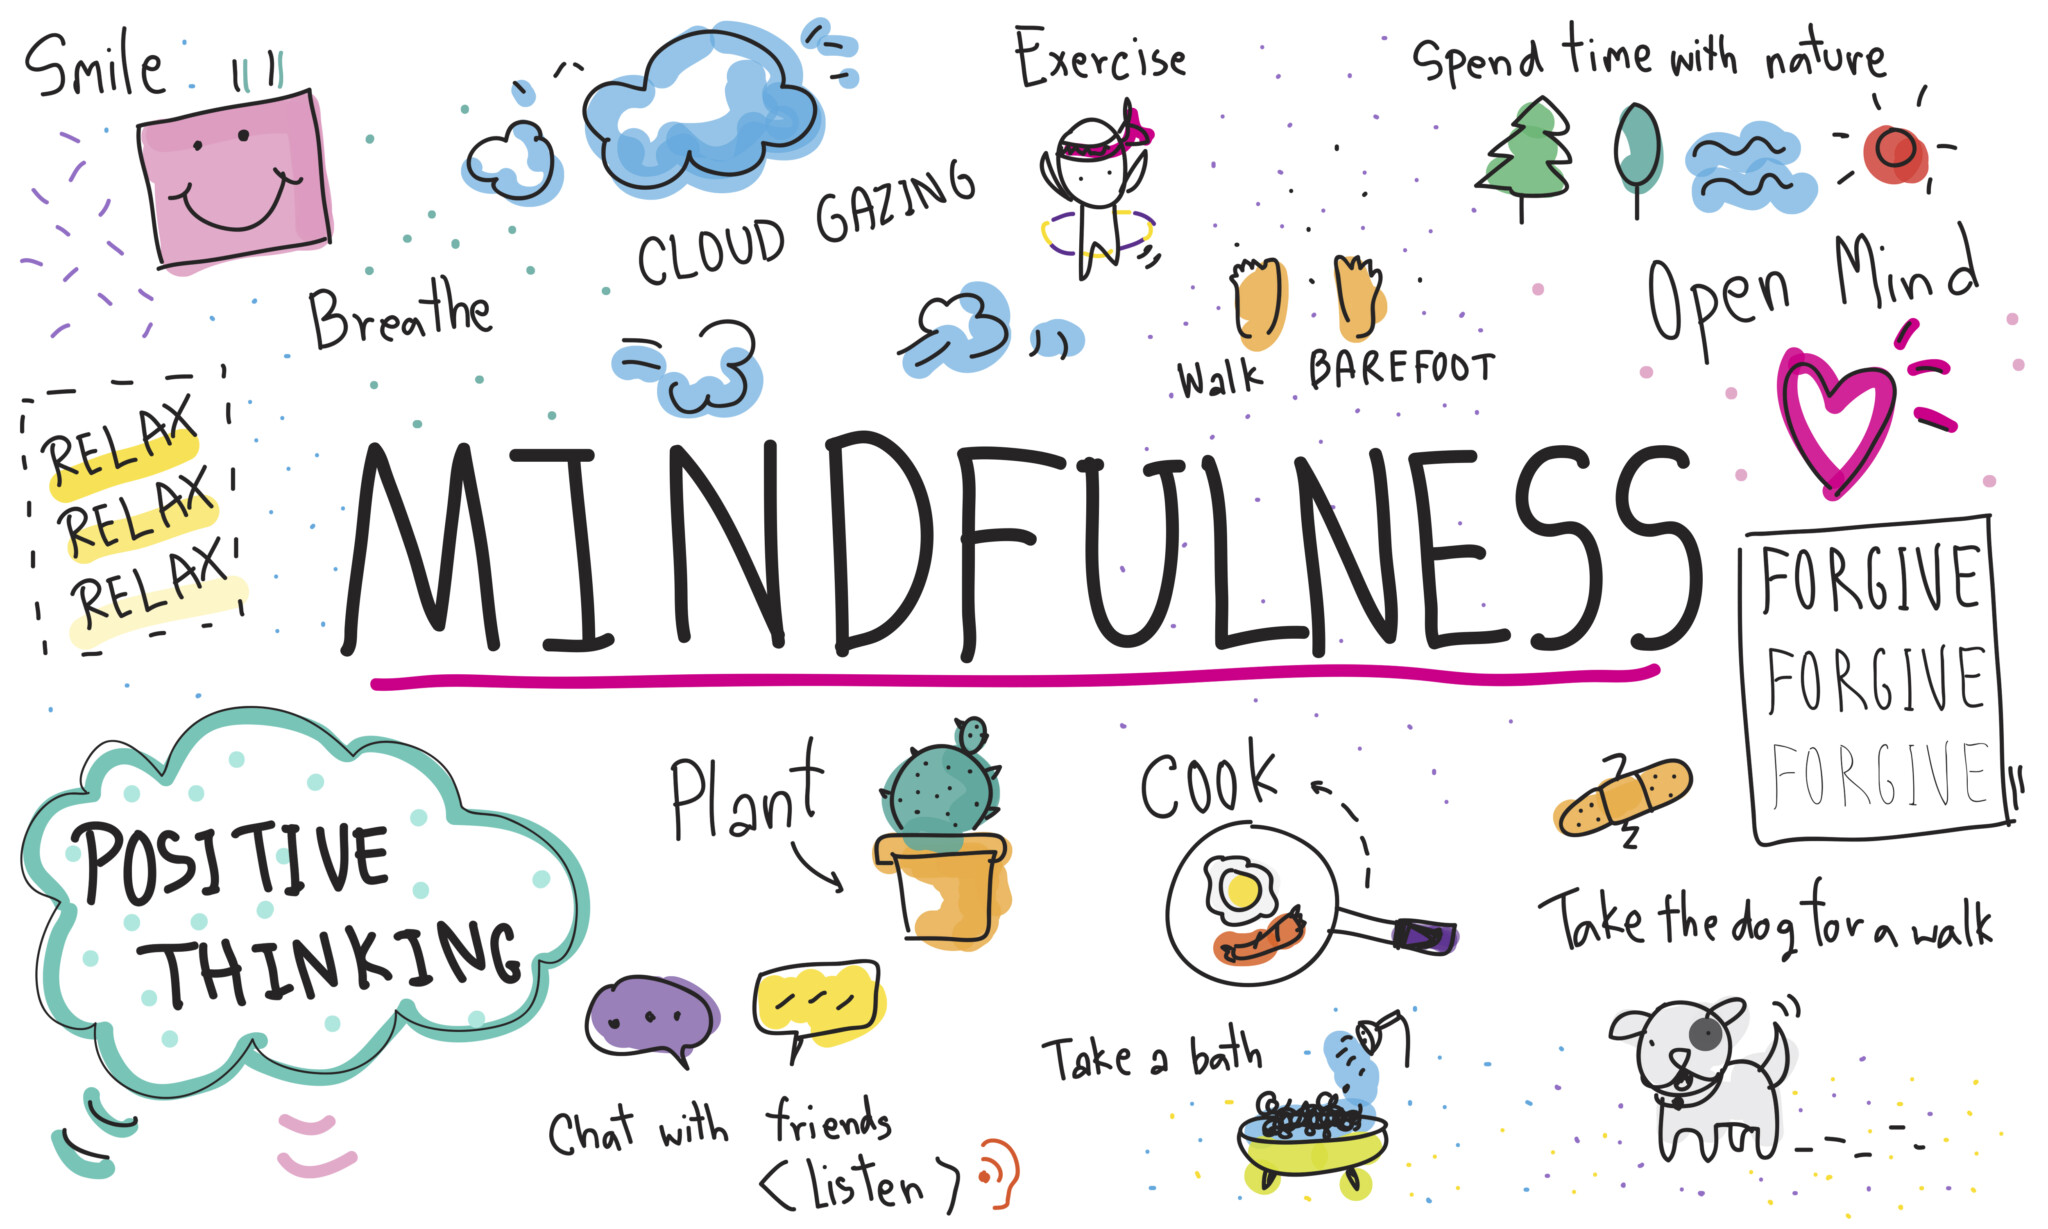 Smile
Exercise
Spend time with nature
CLOUD GAZING
Breathe
Open Mind
Walk BAREFOOT
RELAX
RELAX
RELAX
MINDFULNESS
FORGIVE
FORGIVE
FORGIVE
POSITIVE
THINKING
Plant
COOK
Take the dog for a walk
Take a bath
Chat with friends
<listen>